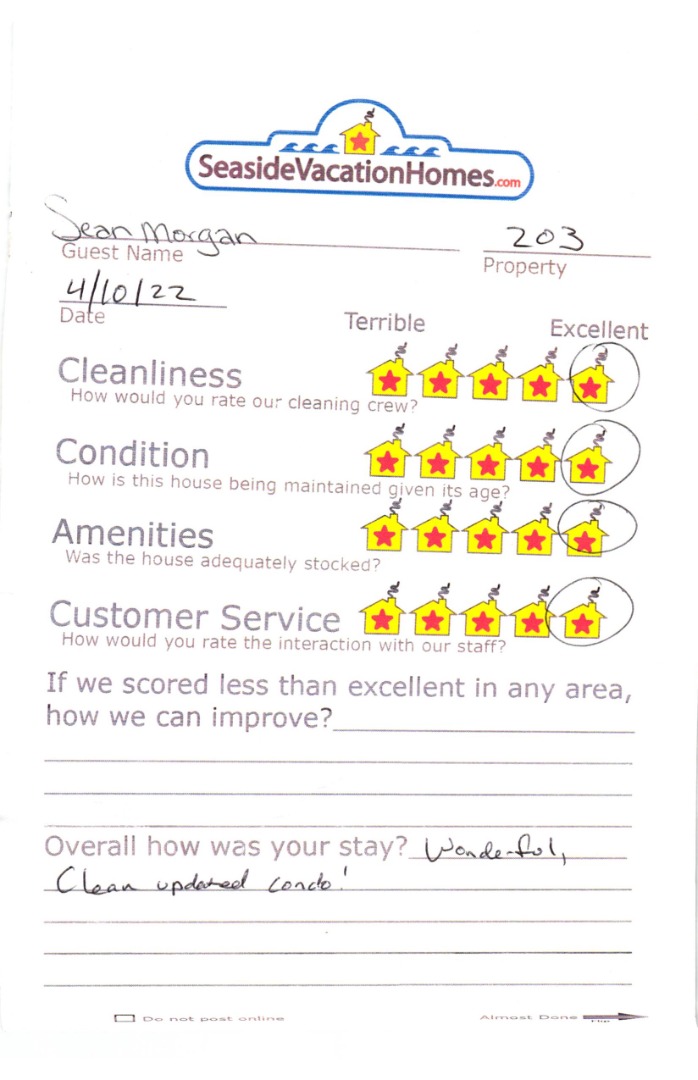 SeasideVacationHomes.com
Sean Morgan 203
Guest Name Property
4/10/22
Date
Terrible Excellent
Cleanliness
How would you rate our cleaning crew?
Condition
How is this house being maintained given its age?
Amenities
Was the house adequately stocked?
Customer Service
How would you rate the interaction with our staff?
If we scored less than excellent in any area,
how we can improve?
Overall how was your stay? Wonderful,
Clean updated condo!
Do not post online Almost Done
Flip